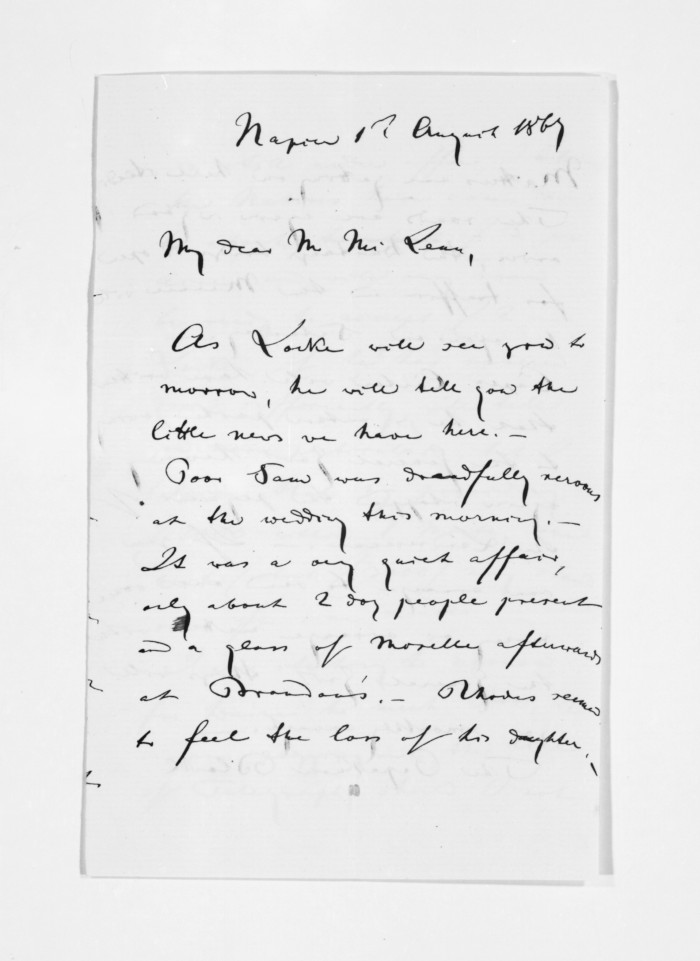 Napier 1st August 1867
My dear Mr McLean,
As Locke will see you to
morrow, he will tell you the
little news we have here. —
Poor Sam was dreadfully nervous
at the wedding this morning. —
It was a very quiet affair,
only about 2 doz people present
and a glass of Moselle afterwards
at . — Rhodes seemed
to feel the loss of his daughter.